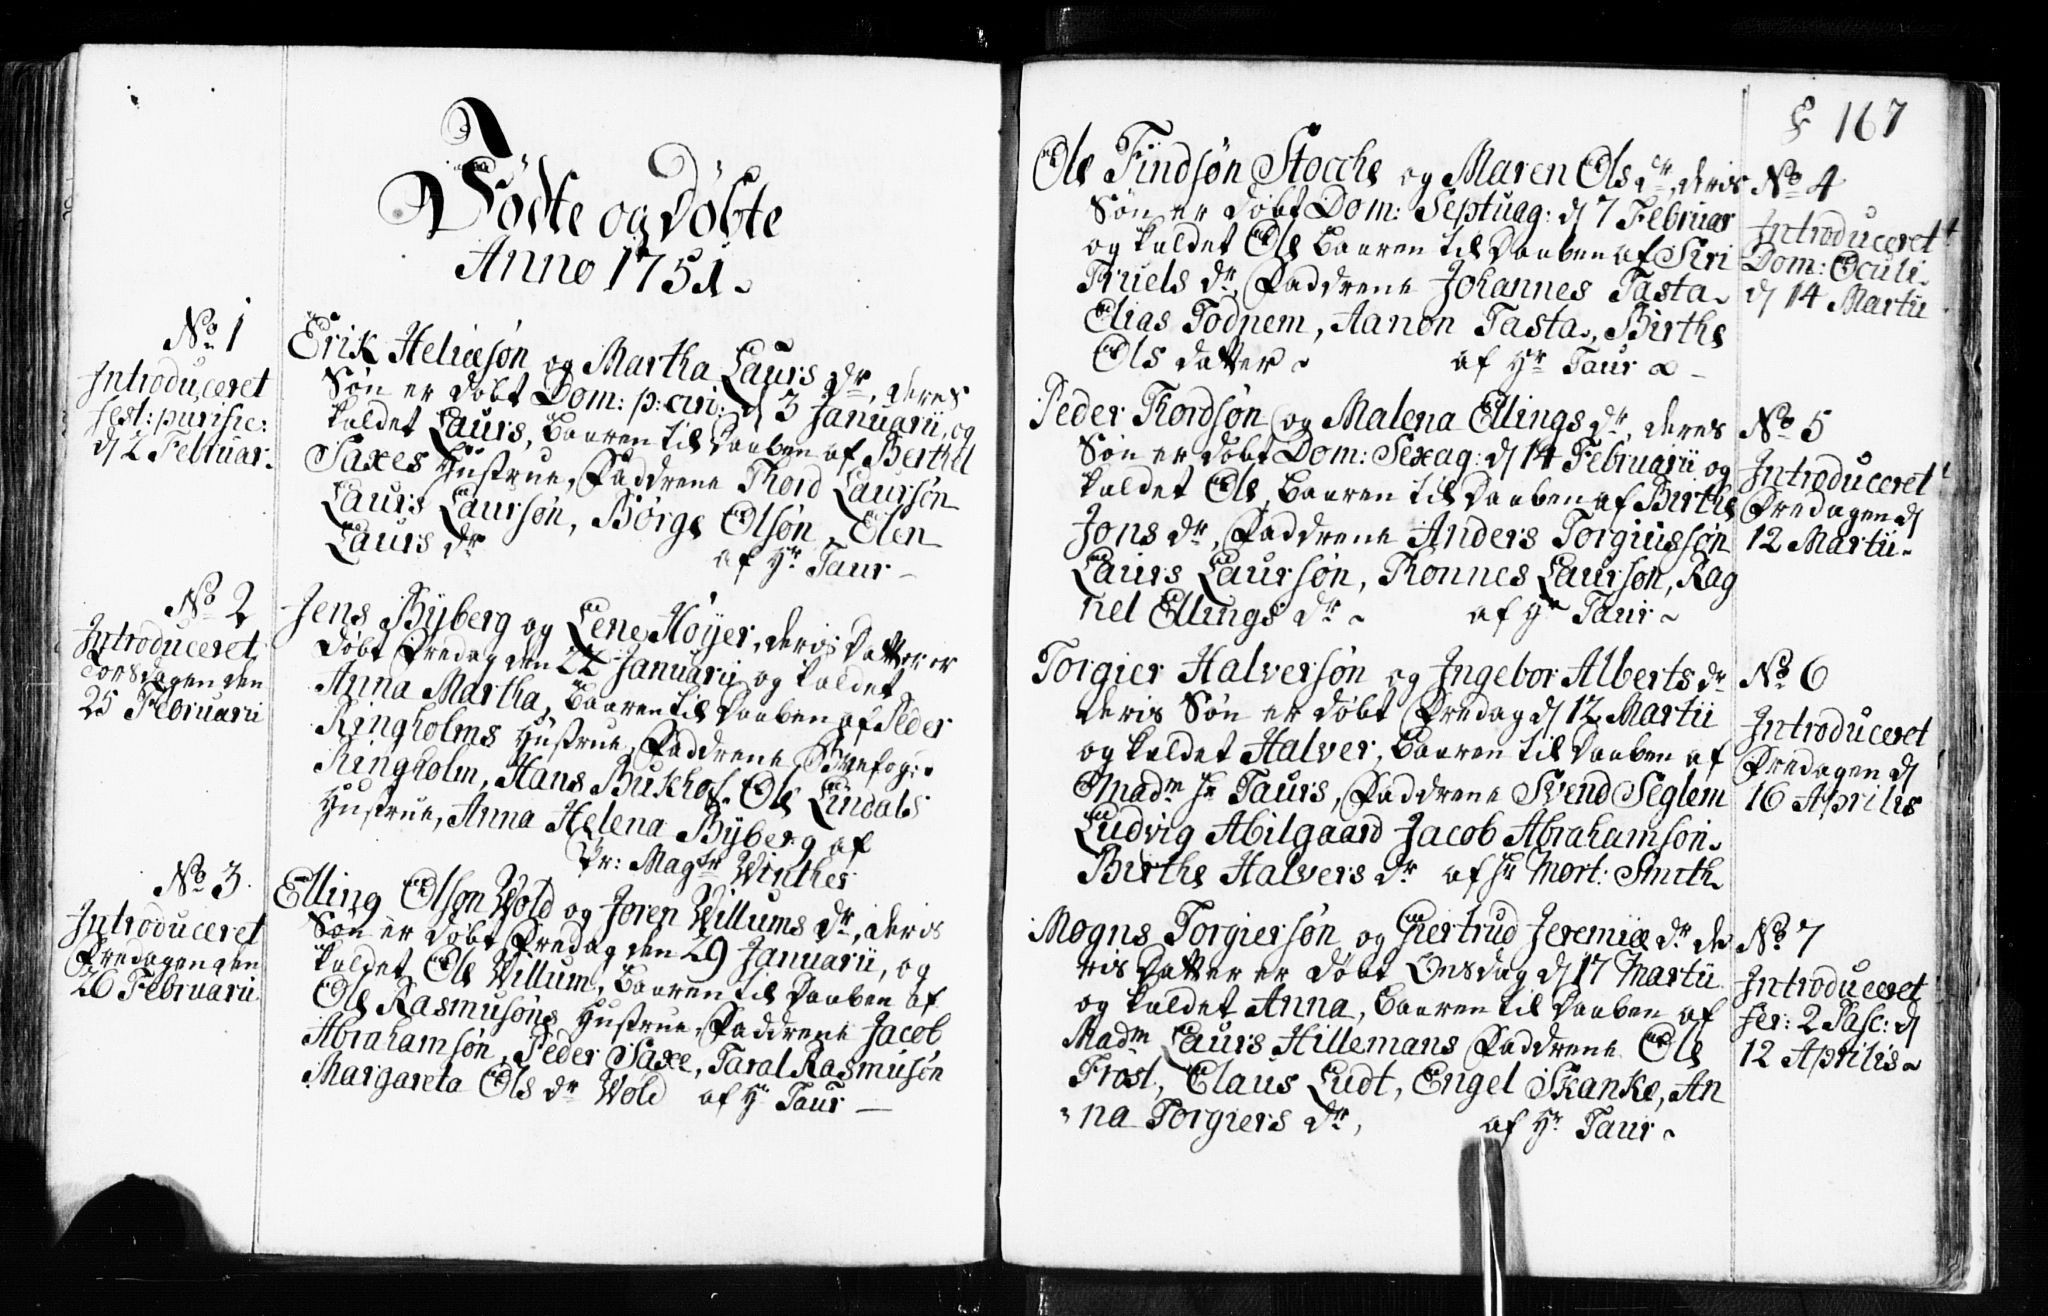 Fødte og Døbte
Anno 1751.
No 1
Introduceret
fest: purific:
d 2 Februar.
Erik Heliæsøn og Martha Laurs dr, deres
Søn er døbt Dom: p: circ: d 3 Januarii, og
kaldet Laurs, baaren til Daaben af Berthil
Saxes Hustrue, Faddrene Thord Laursøn
Laurs Laursøn, Børge Olsøn, Elen
Laurs dr af Hr Taur
No 2
Introduceret
Torsdagen den
25 Februarii
Jens Byberg og Lene Høyer, deris Datter er
døbt Fredag den 22 Januarii og kaldet
Anna Martha, baaren til Daaben af Peder
Ringholms Hustrue, Faddrene Byefog:
Ringholm, Hans Bukhol. Ole Lindals
Hustrue, Anna Helena Byberg af
Pr: Magr Winther
No 3.
Introduceret
Fredagen den
26 Februarii
Elling Olsøn Wold og Joren Willums dr, deris
Søn er døbt Fredag den 29 Januarii, og
kaldet Ole Willum, baaren til Daaben af
Ole Rasmusøns Hustrue, Faddrene Jacob
Abrahamsøn, Peder Saxe, Taral Rasmusøn
Margareta Ols dr Wold af Hr Taur
167
Ole Findsøn Stocche og Maren Ols dr, deris
Søn er døbt Dom: Septuag: d 7 Februar
og kaldet Ole baaren til Daaben af Siri
Truels dr, Faddrene Johannes Tasta
Elias Todnem, Aanon Tasta, Birthe
Ols datter af Hr Taur
No 4
Introduceret
Dom: Oculi
d 14 Martii
Peder Thordsøn og Malena Ellings dr, deres
Søn er døbt Dom: Sexag: d 14 Februarii og
kaldet Ole, baaren til Daaben af Birthe
Jons dr, Faddrene Anders Torgiussøn
Laurs Laursøn, Thonnes Laursøn, Rag
nel Ellings dr af Hr Taur
No 5
Introduceret
Fredagen d
12 Martii
Torgier Halversøn og Ingebor Alberts dr
deris Søn er døbt Fredag d 12 Martii
og kaldet Halver, baaren til Daaben af
Madm Hr Taurs, Faddrene Svend Seglem
Ludvig Abilgaard Jacob Abrahamsøn
Birthe Halvers dr af Hr Mort: Smith
No 6
Introduceret
Fredagen d
16 Aprilis
Mogns Torgiersøn og Giertrud Jeremiæ dr de
ris Datter er døbt Onsdag d 17 Martii
og kaldet Anna, baaren til Daaben af
Madm Laurs Hillemans Faddrene Ole
Frost, Claus Ludt, Engel Skanke, An
na Torgiers dr, af Hr Taur
No 7
Introduceret
fer: 2 Pasc: d
12 Aprilis